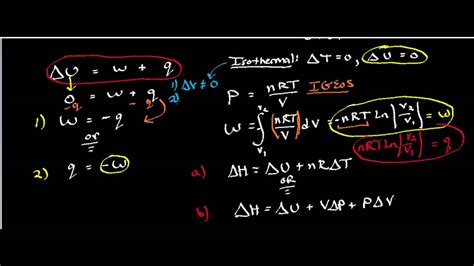 ΔU = w + q
0 = w + q
-q -q
1) ΔV ≠ 0
2)
1) w = -q
or
2) q = -w
Isothermal: ΔT = 0, ΔU = 0
P = nRT/V IGEOS
w = ∫_{V₁}^{V₂} (nRT/V) dV = -nRT Ln|V₂/V₁| = w
nRT Ln|V₂/V₁| = q
a) ΔH = ΔU + nRΔT
or
b) ΔH = ΔU + VΔP + PΔV